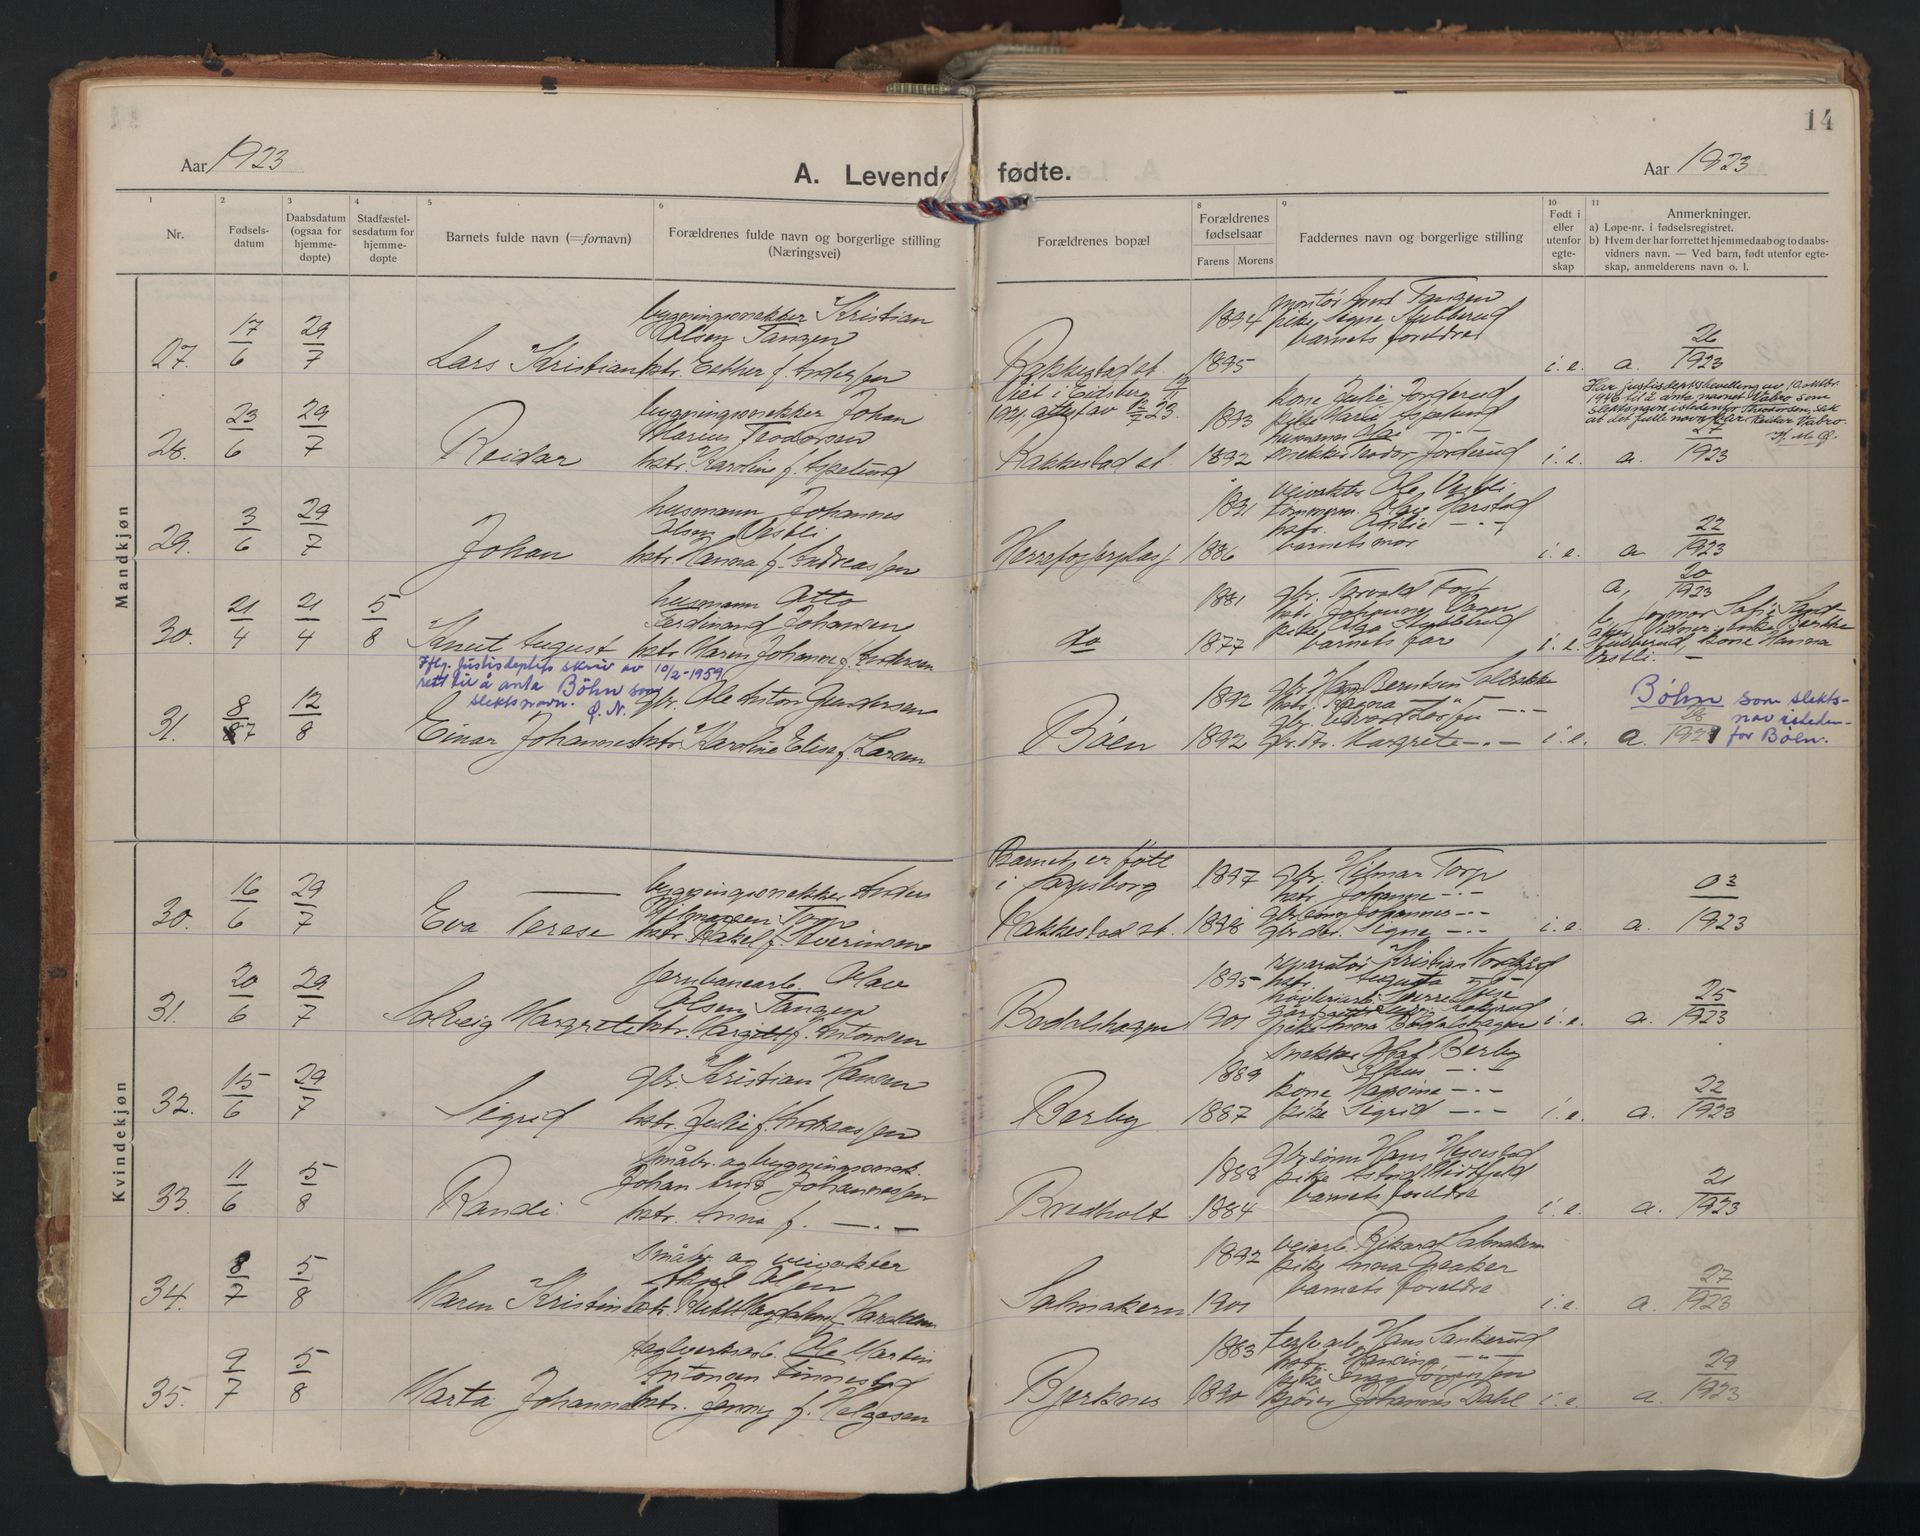 14
Aar 1923
A. Levende fødte.
Aar 1923
1 2 3 4 5 6 8 9 10 11
Nr.
Fødsels-
datum
Daabsdatum
(ogsaa for
hjemme-
døpte)
Stadfæstel-
sesdatum for
hjemme-
døpte
Barnets fulde navn (=fornavn)
Forældrenes fulde navn og borgerlige stilling
(Næringsvei)
Forældrenes bopæl
Forældrenes
fødselsaar
Farens Morens
Faddernes navn og borgerlige stilling
Født i
eller
utenfor
egte-
skap
Anmerkninger.
a) Løpe-nr. i fødselsregistret.
b) Hvem der har forrettet hjemmedaab og to daabs-
vidners navn. — Ved barn, født utenfor egte-
skap, anmelderens navn o. l.
Mandkjøn
27. 17/6 29/7 Lars Kristian
bygningssnekker Kristian
Olsen Tangen
hstr. Esther f. Andersen
Rakkestad st.
1894
1895
montør Tangen
pike Signe Stubberud
barnets foreldre
i. e. a. 26/1923
28. 23/6 29/7 Reidar
bygningssnekker Johan
Marius Teodorsen
hstr. Karoline f. Aspelund
Viet i Eidsberg
1921. attest av 23.
Rakkestad st.
1893
1892
kone Julie Jorderud
pike Marie Aspelund
snekker Teodor Jorderud
i. e. a. 27/1923
Har justisdepts bevilling av 10 oktbr.
1946 til å anta navnet Vabro som
slektsnavn istedenfor Theodorsen, slik
at det fulle navn blir Reidar Vabro.
29. 3/6 29/7 Johan
husmann Johannes
Olsen Østli
hstr. Hanna f. Andreassen
1891
1886
veivokter Ole Østli
tømmerm. Olav Harstad
hstr. Otilie — " —
barnets mor
i. e. a. 22/1923
30. 21/4 21/4 5/8 Knut August
husmann Otto
Ferdinand Johansen
hstr. Maren Johanne f. Andersen
do
1881
1877
gbr. Torvald Torp
hstr. Johanne
pike Aslaug Stubberud
barnets far
i. e. a. 20/1923
b. jormor Sofie
Vidner: enke
Stubberud, kone Hanna
Østli. —
Iflg. Justisdeptets skriv av 10/2-1959
rett til å anta Bøhn som
slektsnavn. Ø. N.
31. 8/7 12/8 Einar Johannes
gbr. Ole Anton Gundersen
hstr. Karoline Elise f. Larsen
Bøen
1892
1892
gbr. Berntsen
hstr. Ragna — " —
gbr.dtr. Margrete — " —
i. e. a. 28/1921
Bøhn som slekts-
nav isteden-
for Bøen.
Kvindekjøn
30. 16/6 29/7 Eva Terese
bygningssnekker Anders
Hilmarsen Torp
hstr. Rakel f. Sverinsen
Barnet er født
i Sarpsborg
Rakkestad st.
1897
1898
gbr. Hilmar Torp
hstr. Johanne — " —
gbr.sønn Johannes — " —
gbr.dtr. Signe — " —
i. e. a. 03/1923
31. 20/6 29/7 Solveig Margrete
jernbanearb. Olav
Olsen Tangen
hstr. Margit f. Antonsen
Bodalshagen
1895
1901
reparatør Kristian Nordgård
hstr. Augusta — " —
pike Anna Bodalshagen
i. e. a. 25/1923
32. 15/6 29/7 Sigrid
gbr. Kristian Hansen
hstr. Julie f. Andreassen
Berby
1889
1887
snekker Olaf Berby
kone — " —
pike Sigrid — " —
i. e. a. 22/1923
33. 11/6 5/8 Randi
småbr. og bygningssnek.
Johan Arvid Johannessen
hstr. Anna f. — " —
Bredholt
1888
1884
gbr.sønn Hans
pike Astrid
barnets foreldre
i. e. a. 21/1923
34. 8/7 5/8 Maren Kristine
småbr. og veivokter
Aksel Olsen
hstr. Ruth Magdalene f. Haraldsen
Solmakern
1892
1901
veiarb. Rikard Solmakern
pike Anna Graaker
barnets foreldre
i. e. a. 27/1923
35. 9/7 5/8 Marta Johanne
teglverksarb. Ole Martin
Antonsen Finnestad
hstr. Jenny f. Helgesen
Bjerknes
1883
1890
teglv.arb. Hans Sankerud
hstr. Hansine — " —
pike Inga Jørgensen
kjører Johannes Dahl
i. e. a. 29/1923